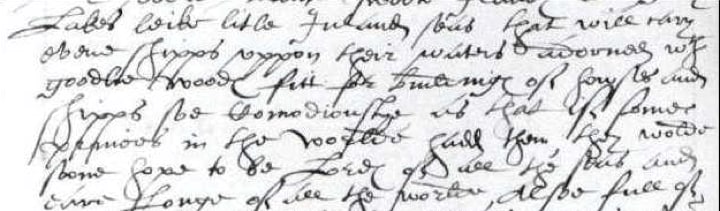 Lakes leike litle Inland seas that will cary
evene shipps uppon their waters adorned wth
goodlie woodes fitt for buildinge of howses and
shipps soe Comodiouslye as that if some
princes in the worlde hadd them they wolde
soone hope to be Lords of all the seas and
eare Longe of all the worlde, Alsoe full of